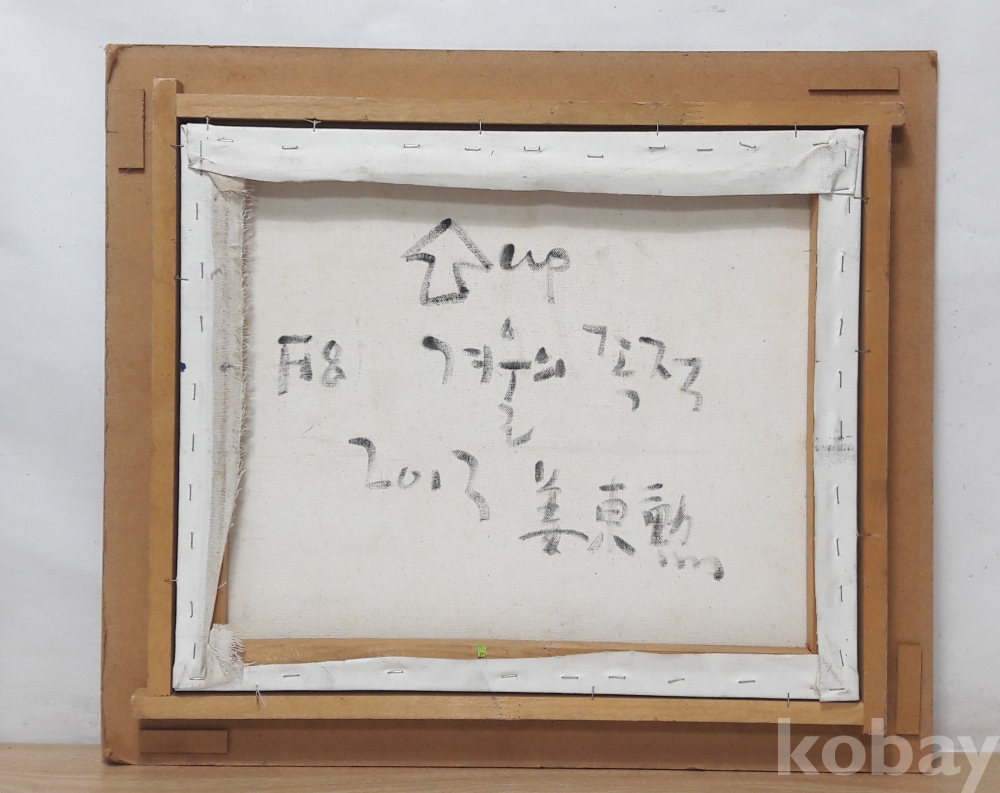 up
F8 겨울의
2013 姜東勳
kobay